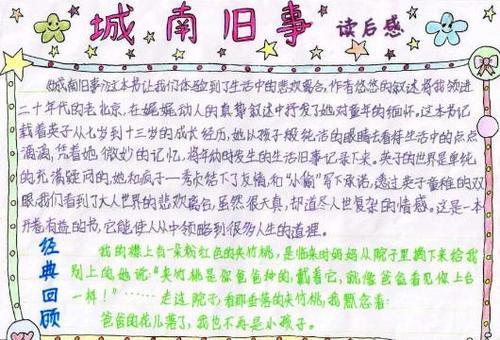 城南旧事 读后感
《城南旧事》这本书让我们体验到了生活中的悲欢离合,作者悠悠的叙述将我领进
二十年代的老北京,在娓娓动人的真挚叙述中抒发了她对童年的缅怀。这本书记
载着英子从七岁到十三岁的成长经历,她以孩子般纯洁的眼睛去看待生活中的点点
滴滴,凭着她微妙的记忆,将年幼时发生的生活旧事记录下来。英子的世界是单纯
的充满疑问的,她和疯子一秀贞结下了友情,和“小偷”写下承诺,透过英子童稚的双
眼我们看到了大人世界的悲欢离合,虽然很天真,却道尽人世复杂的情感。这是一本
开卷有益的书,它能使人从中领略到很多人生的道理。
经典回顾
我的襟上有一朵粉红色的夹竹桃,是临来时妈妈从院子里摘下来给我
别上的她说:“夹竹桃是你爸爸种的,戴着它,就像爸爸看见你上台
一样!”……走过院子,看那垂落的夹竹桃,我默念着:
爸爸的花儿落了,我也不再是小孩子。